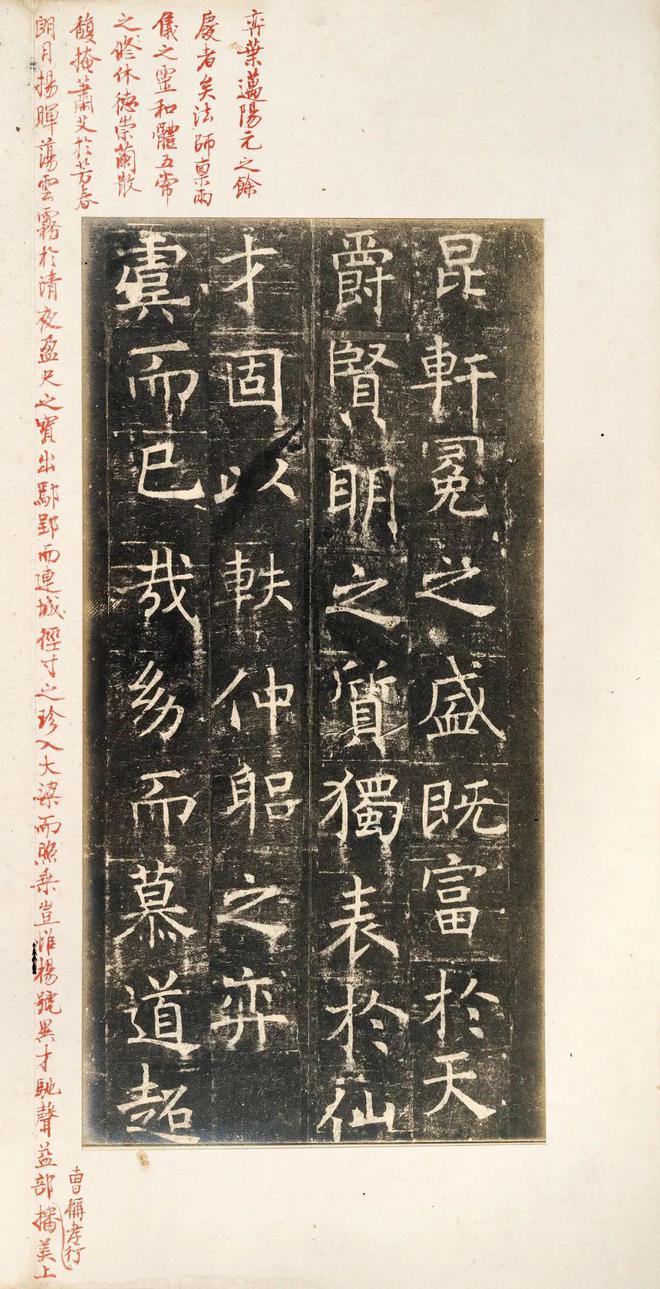 弈葉邁陽元之餘
慶者矣法師稟兩
儀之靈和體五常
之修休德崇蘭散
馥掩蕭艾於芳春
朗月揚暉蕩雲霧於清夜盈尺之寶出鄢郢而連城徑寸之珍入大梁而照乘豈惟楊號異才馳聲益部播美上
曹稱孝行
昆軒冕之盛既富於天
爵賢明之質獨表於仙
才固以軼仲躳之弈
虞而已哉幼而慕道超